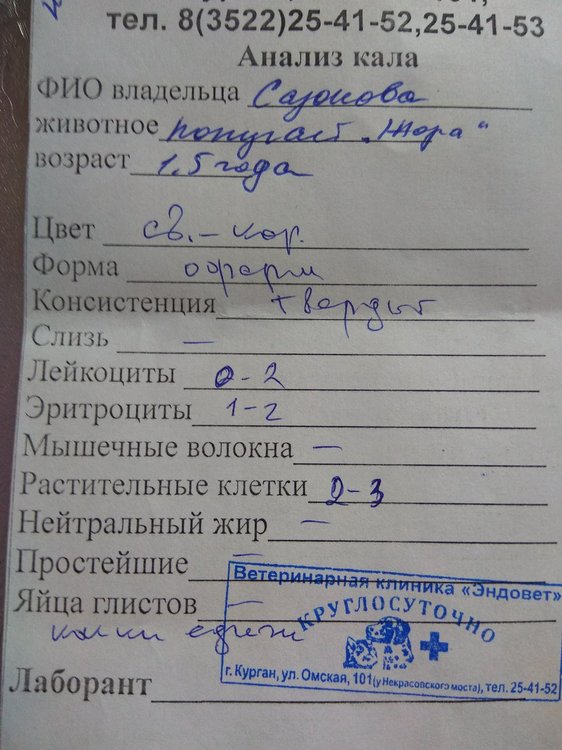 тел. 8(3522)25-41-52,25-41-53
Анализ кала
ФИО владельца Сазонова
животное попугай „Жора“
возраст 1,5 года
Цвет св.-кор.
Форма оформ
Консистенция твердый
Слизь —
Лейкоциты 0-2
Эритроциты 1-2
Мышечные волокна —
Растительные клетки 2-3
Нейтральный жир —
Простейшие —
Яйца глистов —
кокки единич
Лаборант
Ветеринарная клиника «Эндовет»
КРУГЛОСУТОЧНО
г. Курган, ул. Омская, 101(у Некрасовского моста), тел. 25-41-52